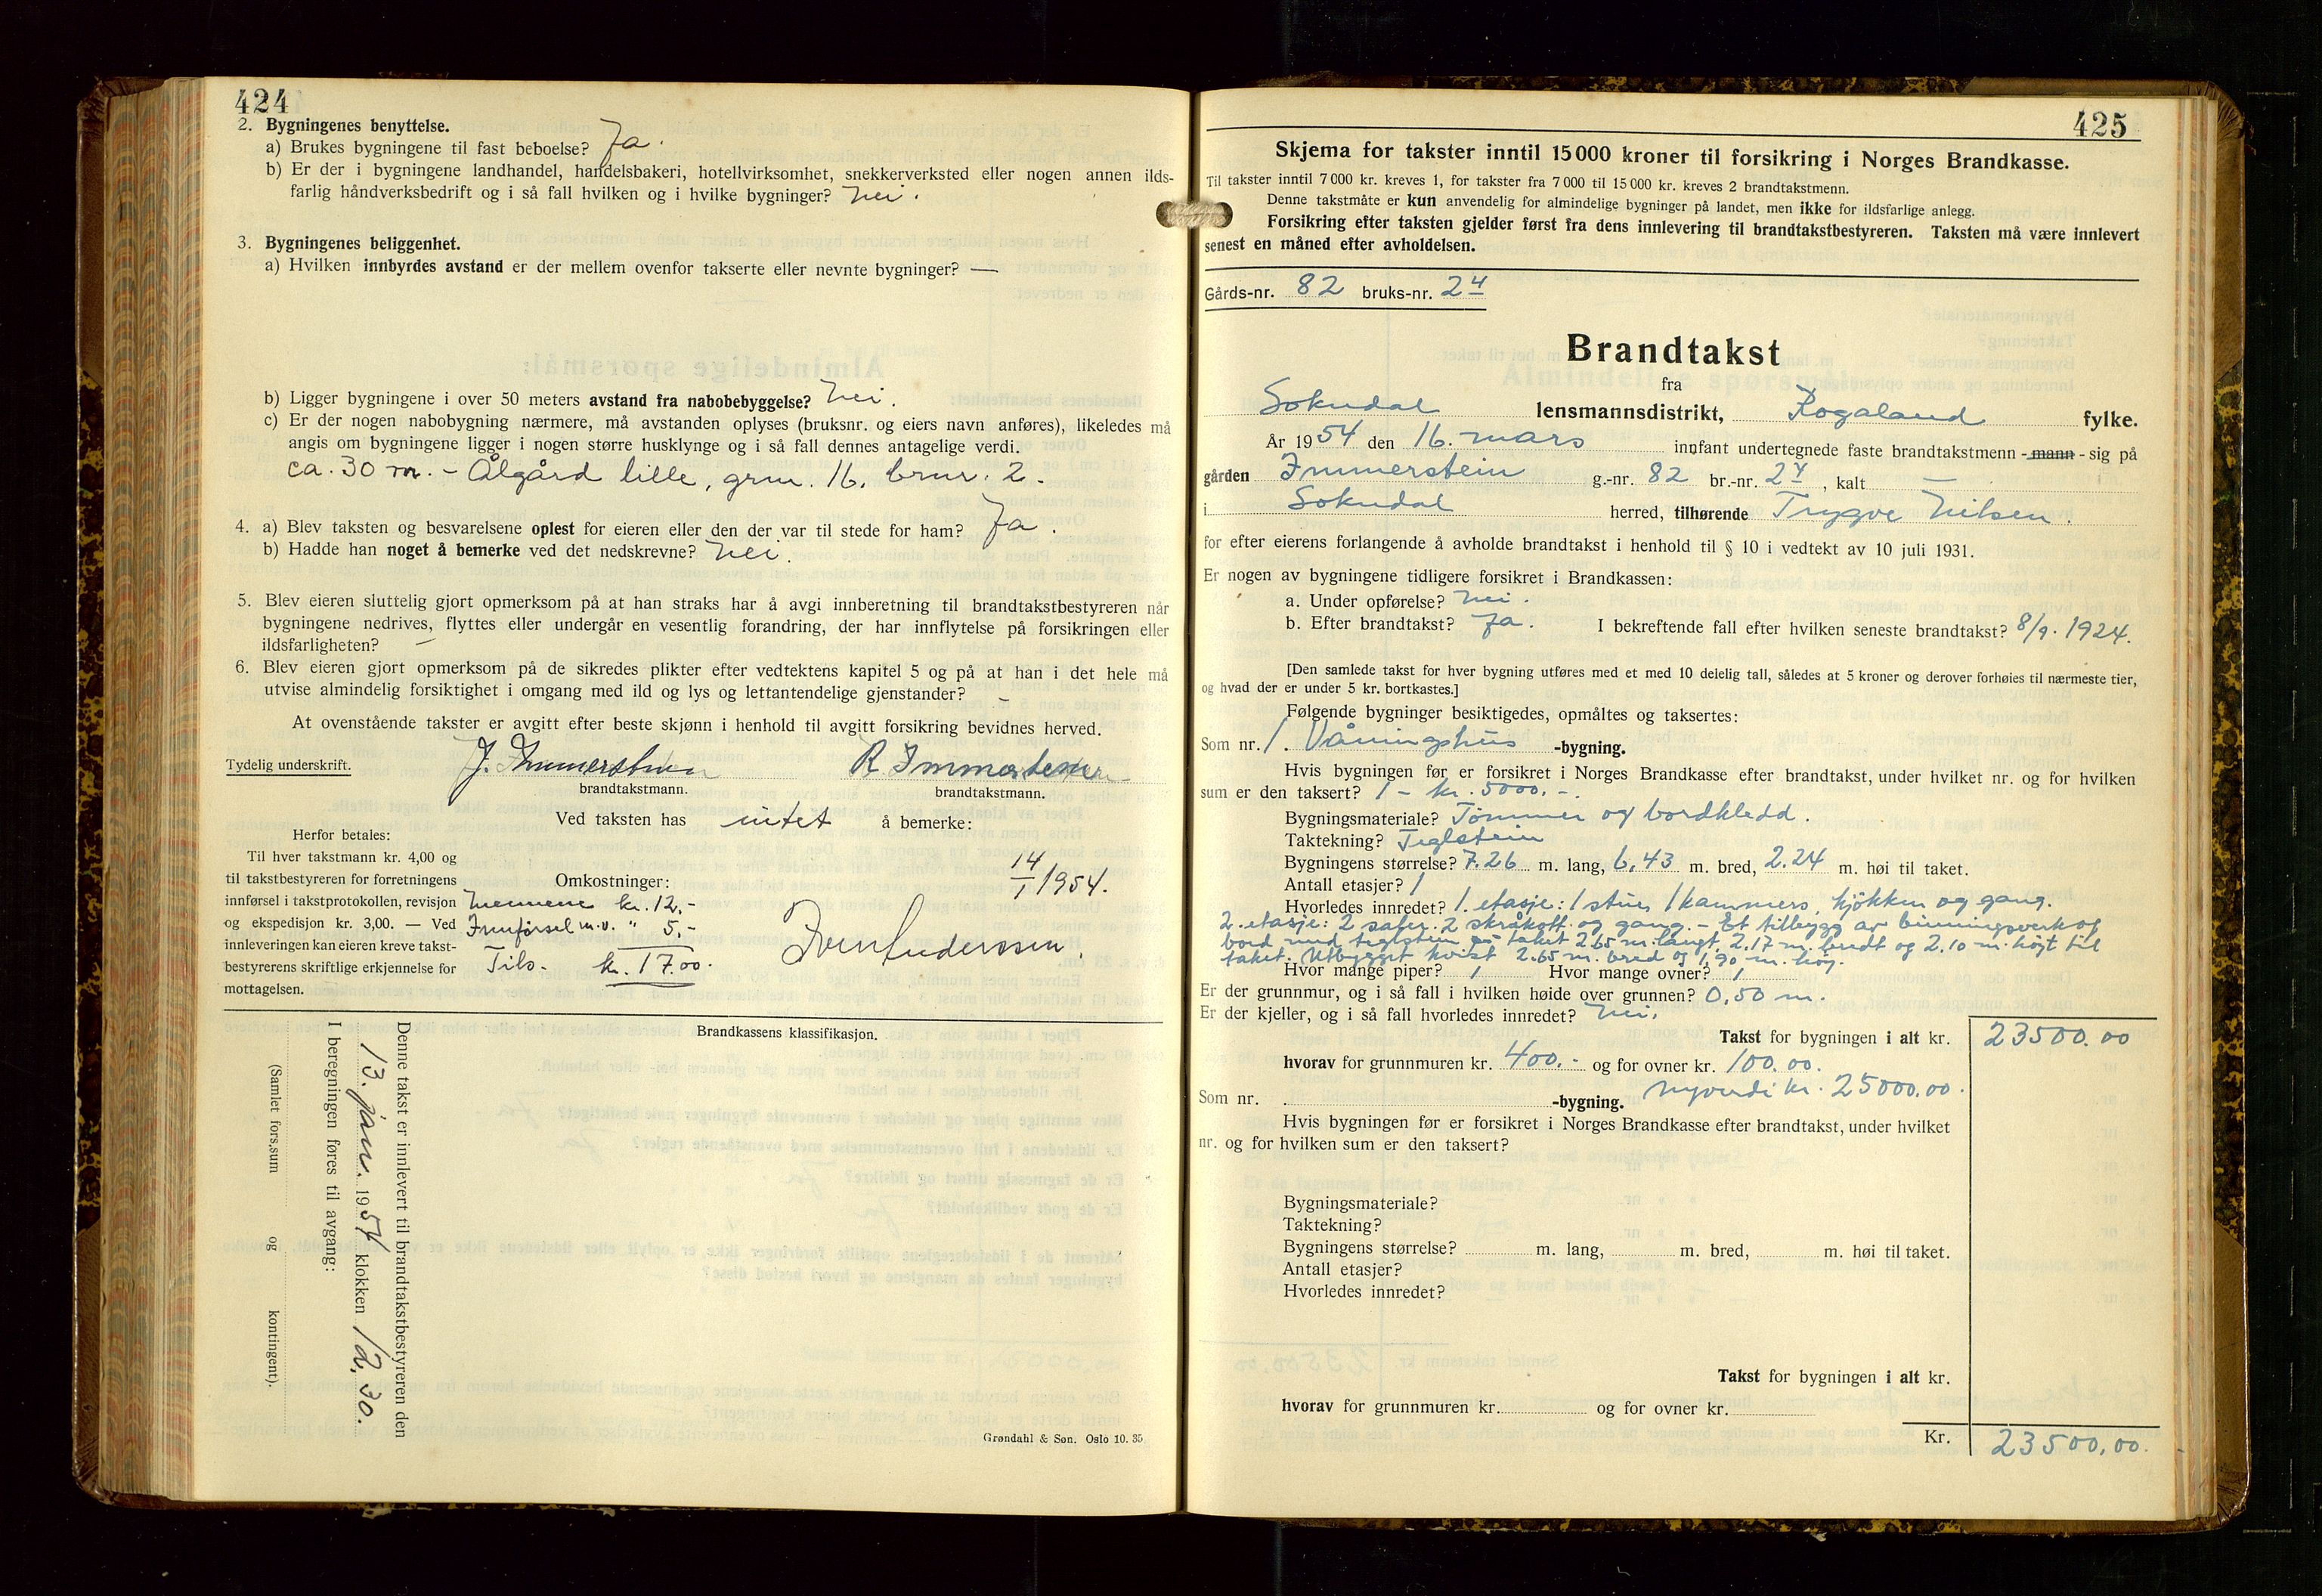 424
2. Bygningenes benyttelse.
a) Brukes bygningene til fast beboelse? Ja.
b) Er der i bygningene landhandel, handelsbakeri, hotellvirksomhet, snekkerverksted eller nogen annen ilds-
farlig håndverksbedrift og i så fall hvilken og i hvilke bygninger? Nei.
3. Bygningenes beliggenhet.
a) Hvilken innbyrdes avstand er der mellem ovenfor takserte eller nevnte bygninger? —
b) Ligger bygningene i over 50 meters avstand fra nabobebyggelse? Nei.
c) Er der nogen nabobygning nærmere, må avstanden oplyses (bruksnr. og eiers navn anføres), likeledes må
angis om bygningene ligger i nogen større husklynge og i så fall dennes antagelige verdi.
ca. 30 m. – Ålgård lille, grnr. 16, brnr. 2.
4. a) Blev taksten og besvarelsene oplest for eieren eller den der var til stede for ham? Ja.
b) Hadde han noget å bemerke ved det nedskrevne? Nei.
5. Blev eieren sluttelig gjort opmerksom på at han straks har å avgi innberetning til brandtakstbestyreren når
bygningene nedrives, flyttes eller undergår en vesentlig forandring, der har innflytelse på forsikringen eller
ildsfarligheten? –
6. Blev eieren gjort opmerksom på de sikredes plikter efter vedtektens kapitel 5 og på at han i det hele må
utvise almindelig forsiktighet i omgang med ild og lys og lettantendelige gjenstander? –
At ovenstående takster er avgitt efter beste skjønn i henhold til avgitt forsikring bevidnes herved.
Tydelig underskrift. J. Immerstein R. Immerstein
brandtakstmann. brandtakstmann.
Ved taksten has intet å bemerke:
Herfor betales:
Til hver takstmann kr. 4,00 og
til takstbestyreren for forretningens
innførsel i takstprotokollen, revisjon
og ekspedisjon kr. 3,00. — Ved
innleveringen kan eieren kreve takst-
bestyrerens skriftlige erkjennelse for
mottagelsen.
Omkostninger:
Mennene kr. 12,-
Innførsel m.v. " 5,-
Tils. kr. 17.00.
14/1 1954.
Brandkassens klassifikasjon.
Denne takst er innlevert til brandtakstbestyreren den
13. jan. 1954 klokken 12,30.
I beregningen føres til avgang:
(Samlet fors.sum og kontingent).
Grøndahl & Søn. Oslo 10. 35
425
Skjema for takster inntil 15000 kroner til forsikring i Norges Brandkasse.
Til takster inntil 7000 kr. kreves 1, for takster fra 7000 til 15000 kr. kreves 2 brandtakstmenn.
Denne takstmåte er kun anvendelig for almindelige bygninger på landet, men ikke for ildsfarlige anlegg.
Forsikring efter taksten gjelder først fra dens innlevering til brandtakstbestyreren. Taksten må være innlevert
senest en måned efter avholdelsen.
Gårds-nr. 82 bruks-nr. 24
Brandtakst
fra
Sokndal lensmannsdistrikt, Rogaland fylke.
År 1954 den 16. mars innfant undertegnede faste brandtakstmenn - mann - sig på
gården Immerstein g.-nr. 82 br.-nr. 24, kalt —
i Sokndal herred, tilhørende Trygve Nilsen.
for efter eierens forlangende å avholde brandtakst i henhold til § 10 i vedtekt av 10 juli 1931.
Er nogen av bygningene tidligere forsikret i Brandkassen:
a. Under opførelse? Nei.
b. Efter brandtakst? Ja. I bekreftende fall efter hvilken seneste brandtakst? 8/9. 1924.
[Den samlede takst for hver bygning utføres med et med 10 delelig tall, således at 5 kroner og derover forhøies til nærmeste tier,
og hvad der er under 5 kr. bortkastes.]
Følgende bygninger besiktigedes, opmåltes og taksertes:
Som nr. 1. Våningshus -bygning.
Hvis bygningen før er forsikret i Norges Brandkasse efter brandtakst, under hvilket nr. og for hvilken
sum er den taksert? 1 – kr. 5000.–.
Bygningsmateriale? Tømmer og bordkledd.
Taktekning? Teglstein
Bygningens størrelse? 7.26 m. lang, 6,43 m. bred, 2.24 m. høi til taket.
Antall etasjer? 1
Hvorledes innredet? 1. etasje: 1 stue, 1 kammers, kjøkken og gang.
2. etasje: 2 saler. 2 skråkott. og gang. – Et tilbygg av binningsverk og
bord med teglstein på taket 2.65 m. langt, 2.17 m. bredt og 2.10 m. højt til
taket. Utbygget kvist 2.65 m. bred og 1,90 m. høj.
Hvor mange piper? 1 Hvor mange ovner? 1
Er der grunnmur, og i så fall i hvilken høide over grunnen? 0,50 m.
Er der kjeller, og i så fall hvorledes innredet? Nei.
Takst for bygningen i alt kr. 23500.00
hvorav for grunnmuren kr. 400.- og for ovner kr. 100.00.
nyverdi kr. 25000.00.
Som nr. -bygning.
Hvis bygningen før er forsikret i Norges Brandkasse efter brandtakst, under hvilket
nr. og for hvilken sum er den taksert?
Bygningsmateriale?
Taktekning?
Bygningens størrelse? m. lang, m. bred, m. høi til taket.
Antall etasjer?
Hvorledes innredet?
Takst for bygningen i alt kr.
hvorav for grunnmuren kr. og for ovner kr.
Kr. 23500,00.